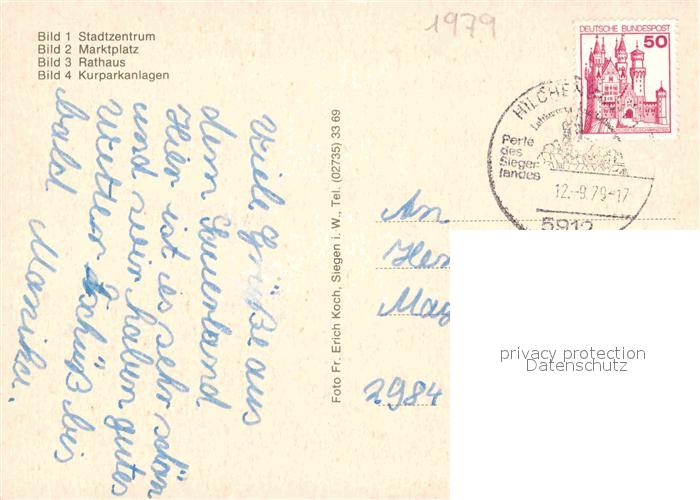 1979
Bild 1 Stadtzentrum
Bild 2 Marktplatz
Bild 3 Rathaus
Bild 4 Kurparkanlagen
DEUTSCHE BUNDESPOST
50
HILCHEN
Perle
des
Sieger-
landes
12.-9.79-17
5912
Viele Grüße aus
dem Sauerland
Hier ist es sehr schön
und wir haben gutes
Wetter Tschüß bis
bald Monika.
Foto Fr. Erich Koch, Siegen i. W., Tel. (02735) 33 69
An
Her
May
2984
privacy protection
Datenschutz